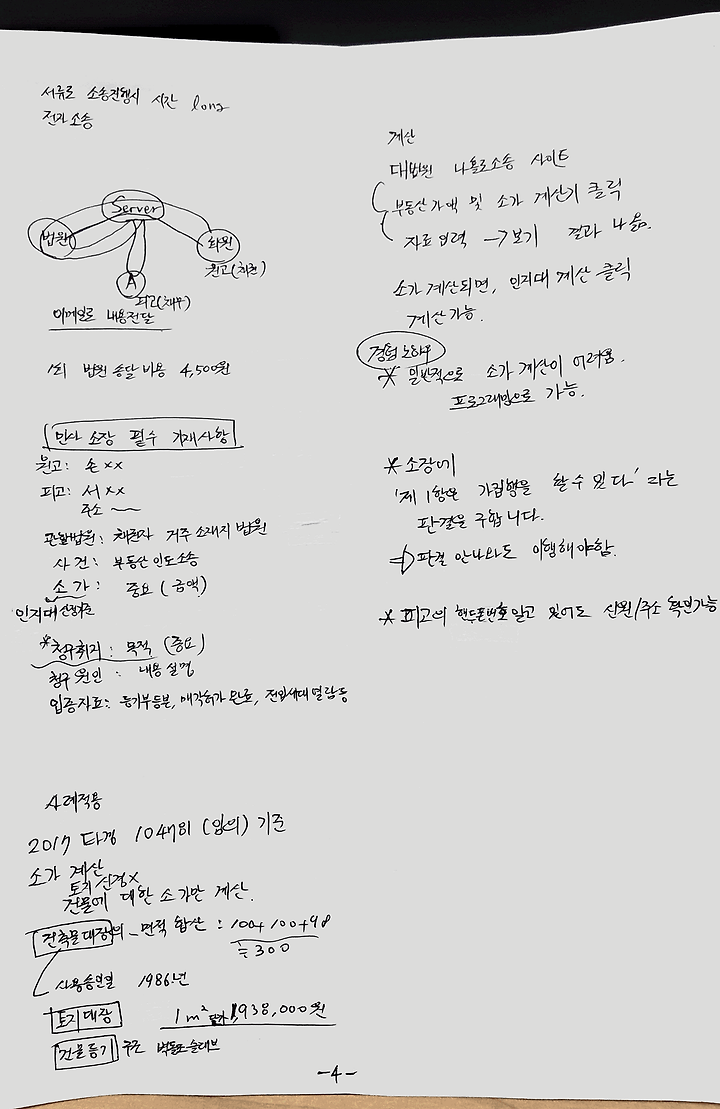 서류로 소송진행시 시간 long
전자소송
Server
법원
회원
원고(채권)
A
피고(채무)
이메일로 내용전달
1회 법원 송달 비용 4,500원
민사 소장 필수 기재사항
원고: 손××
피고: 서××
주소 ~
관할법원: 채권자 거주 소재지 법원
사건: 부동산 인도소송
소가: 중요 (금액)
인지대 산정기준
*청구취지: 목적 (중요)
청구원인: 내용 설명
입증자료: 등기부등본, 매각허가 완료, 전입세대 열람 등
사례적용
2017 타경 104781 (임의) 기준
소가 계산
토지 신경×
건물에 대한 소가만 계산.
건축물대장의 면적 합산: 100+100+98
≒300
사용승인일 1986년
토지대장 1m² 938,000원
건물등기 구조 벽돌조 슬래브
계산
대법원 나홀로소송 사이트
부동산가액 및 소가 계산기 클릭
자료 입력 → 보기 결과 나옴.
소가 계산되면, 인지대 계산 클릭
계산 가능.
경험 노하우
* 일반적으로 소가 계산이 어려움.
프로그램으로 가능.
* 소장에
'제1항은 가집행을 할 수 있다' 라는
판결을 구합니다.
⇒ 판결 안나와도 이행해야함.
* 피고의 핸드폰번호 알고 있어도 신원/주소 확인가능
-4-